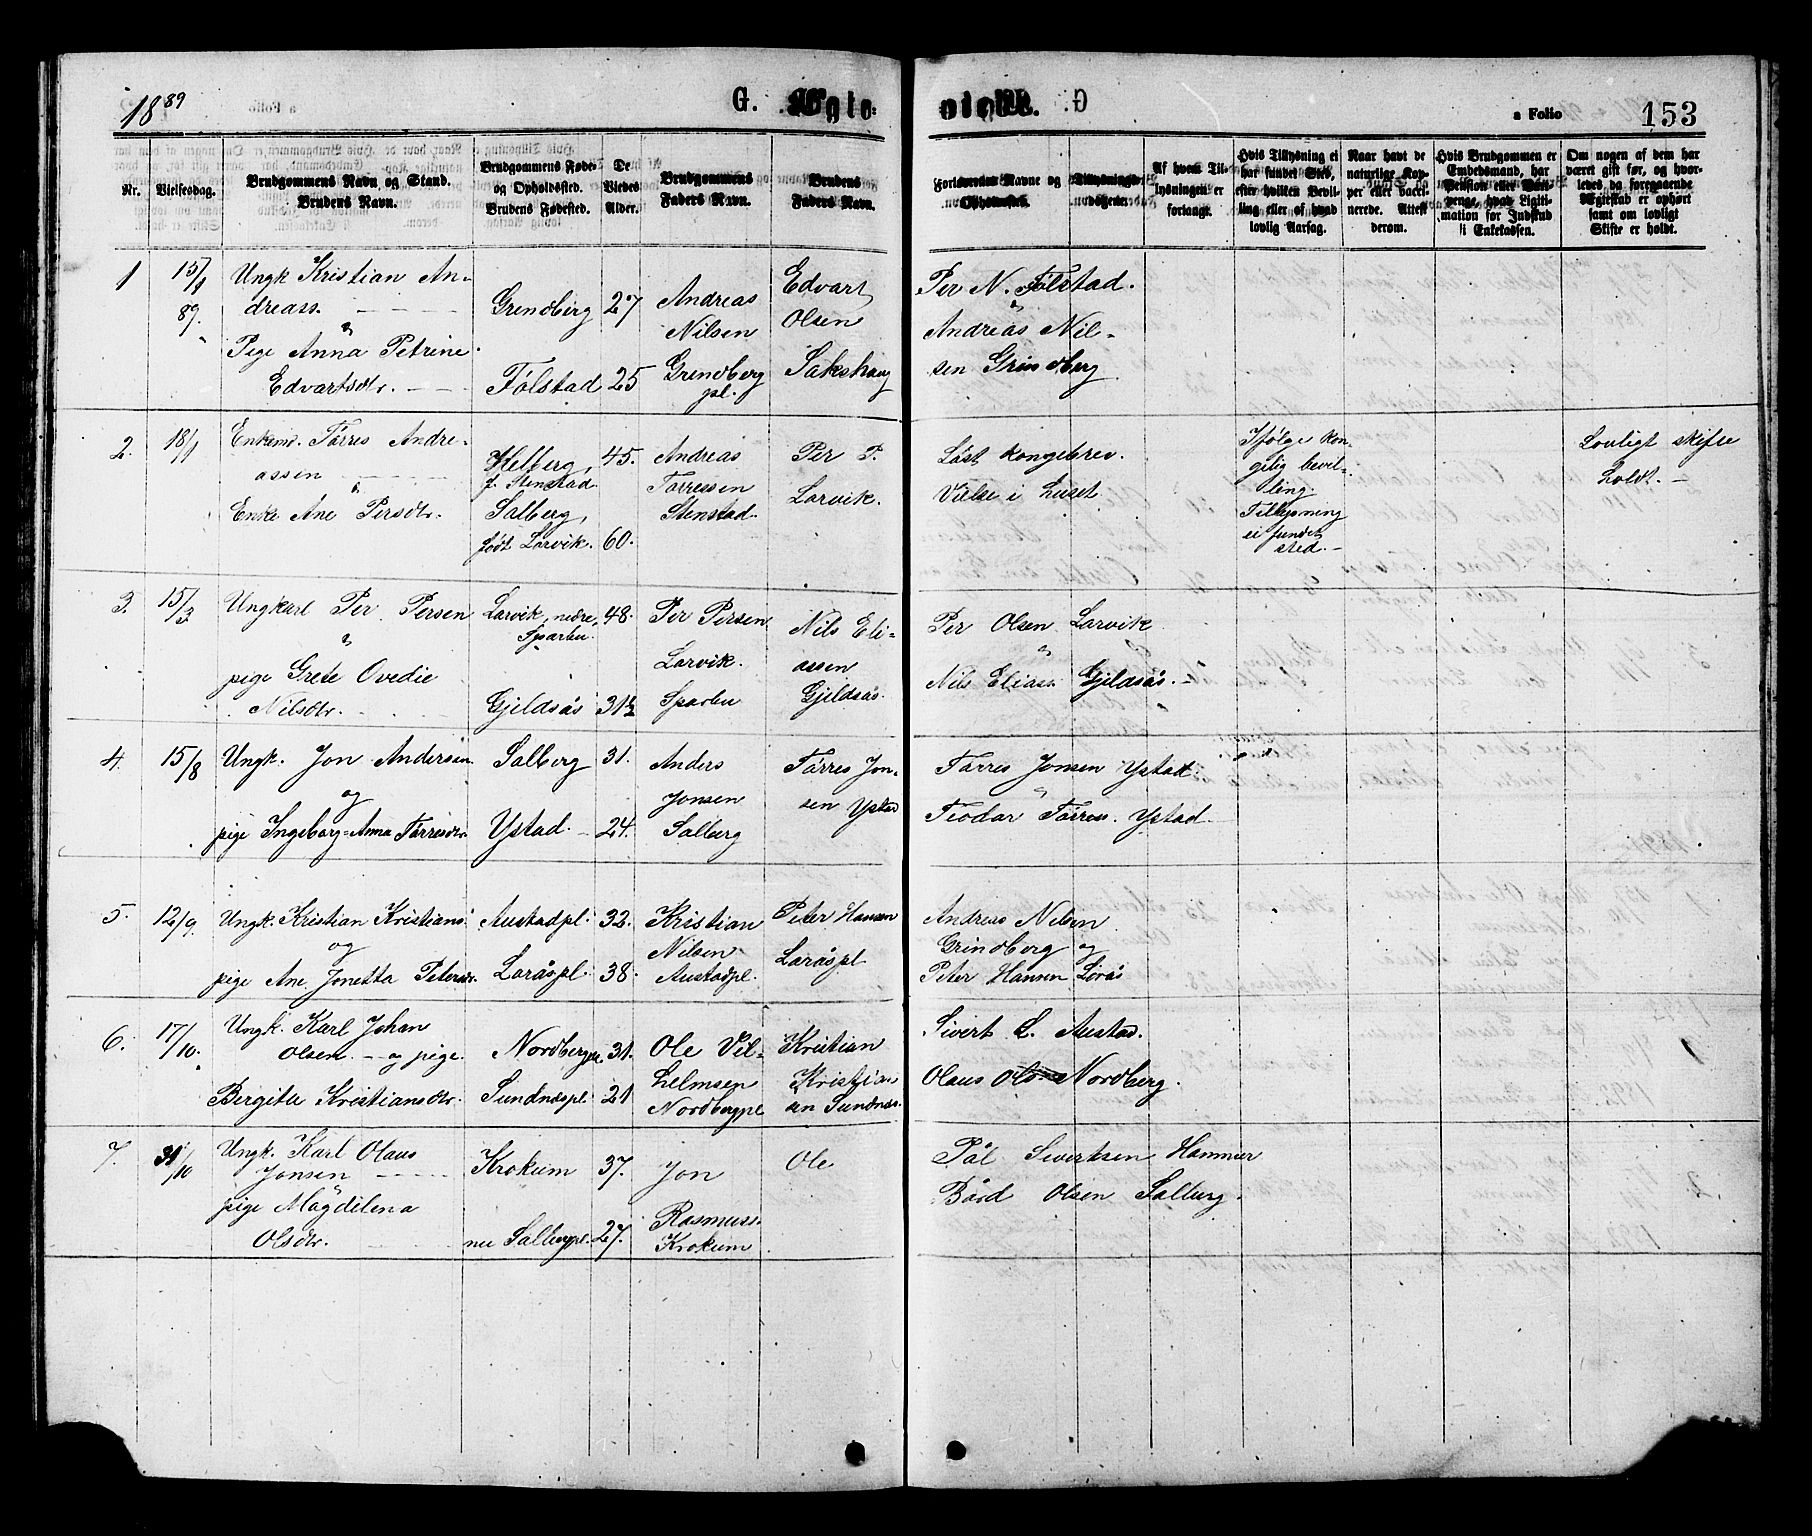 1889
G. Viede
a Folio
153
Nr.
Vielsesdag.
Brudgommens Navn og Stand.
Brudens Navn.
Brudgommens Føde-
og Opholdssted.
Brudens Fødested.
De
Viedes
Alder.
Brudgommens
Faders Navn.
Brudens
Faders Navn.
Forlovernes Navne og
Opholdssted.
Af hvem Til-
lysningen er
forlangt.
Hvis Tillysning ei
har fundet Sted,
efter hvilken Bevil-
ling eller af hvad
lovlig Aarsag.
Naar havt de
naturlige Kop-
per eller vacci-
nerede. Attest
derom.
Hvis Brudgommen er
Embedsmand, har
Pension eller Vart-
penge, hvad Ligiti-
mation for Indskud
i Enkekassen.
Om nogen af dem har
været gift før, og hvor-
ledes da foregaaende
Ægteskab er ophørt
samt om lovligt
Skifte er holdt.
1
15/1
89.
Ungk Kristian An-
dreass.
&
Pige Anna Petrine
Edvartsdtr.
Grendberg
Følstad
27
25
Andreas
Nilsen
Grendberg
pl.
Edvart
Olsen
Sakshaug
Per N. Følstad.
&
Andreas Nil-
sen Grindberg
2.
18/1
Enkem. Tørres Andre-
assen
&
Enke Ane Persdtr.
Helberg,
f. Stenstad
Salberg,
født Lorvik.
45.
60.
Andreas
Tørressen
Stenstad.
Per P.
Lorvik.
Løst kongebrev.
Vielse i huset.
Ifølge kon-
gelig bevil-
ling.
Tillysning
ei fundet
sted.
Lovligt skifte
holdt.
3.
15/3
Ungkarl Per Persen
&
pige Grete Ovedie
Nilsdtr.
Lorvik, nedre,
Sparbu.
Gjeldsås
48.
31½
Per Persen
Lorvik.
Sparbu
Nils Eli-
assen
Gjeldsås.
Per Olsen Lorvik
&
Nils Eliass. Gjeldsås.
4.
15/8
Ungk. Jon Andersen
og
pige Ingeborg-Anna Tørresdtr.
Salberg
Ystad.
31.
24.
Anders
Jonsen
Salberg
Tørres Jon-
sen Ystad
Tørres Jonsen Ystad
&
Teodor Tørres. Ystad.
5.
12/9
Ungk. Kristian Kristians.
og
pige Ane Jonetta Petersdr.
Austadpl.
Loråspl.
32.
38.
Kristian
Nilsen
Austadpl.
Peter Hansen
Loråspl
Andreas Nilsen
Grindberg og
Peter Hansen Lorås
6.
17/10.
Ungk. Karl Johan
Olsen. - og pige.
Birgita Kristiansdtr.
Nordbergpl.
Sundnæspl.
31.
21
Ole Vil-
helmsen
Nordbergpl
Kristian
Kristian
sen Sundnæs.
Sivert L. Austad.
Olaus Ols. Nordberg.
7.
31/10
Ungk. Karl Olaus
Jonsen
&
pige Magdelena
Olsdtr.
Krokum
Salbergpl.
37.
27.
Jon
Rasmuss.
Krokum
Ole
Pål Sivertsen Hammer
Bård Olsen Salberg.